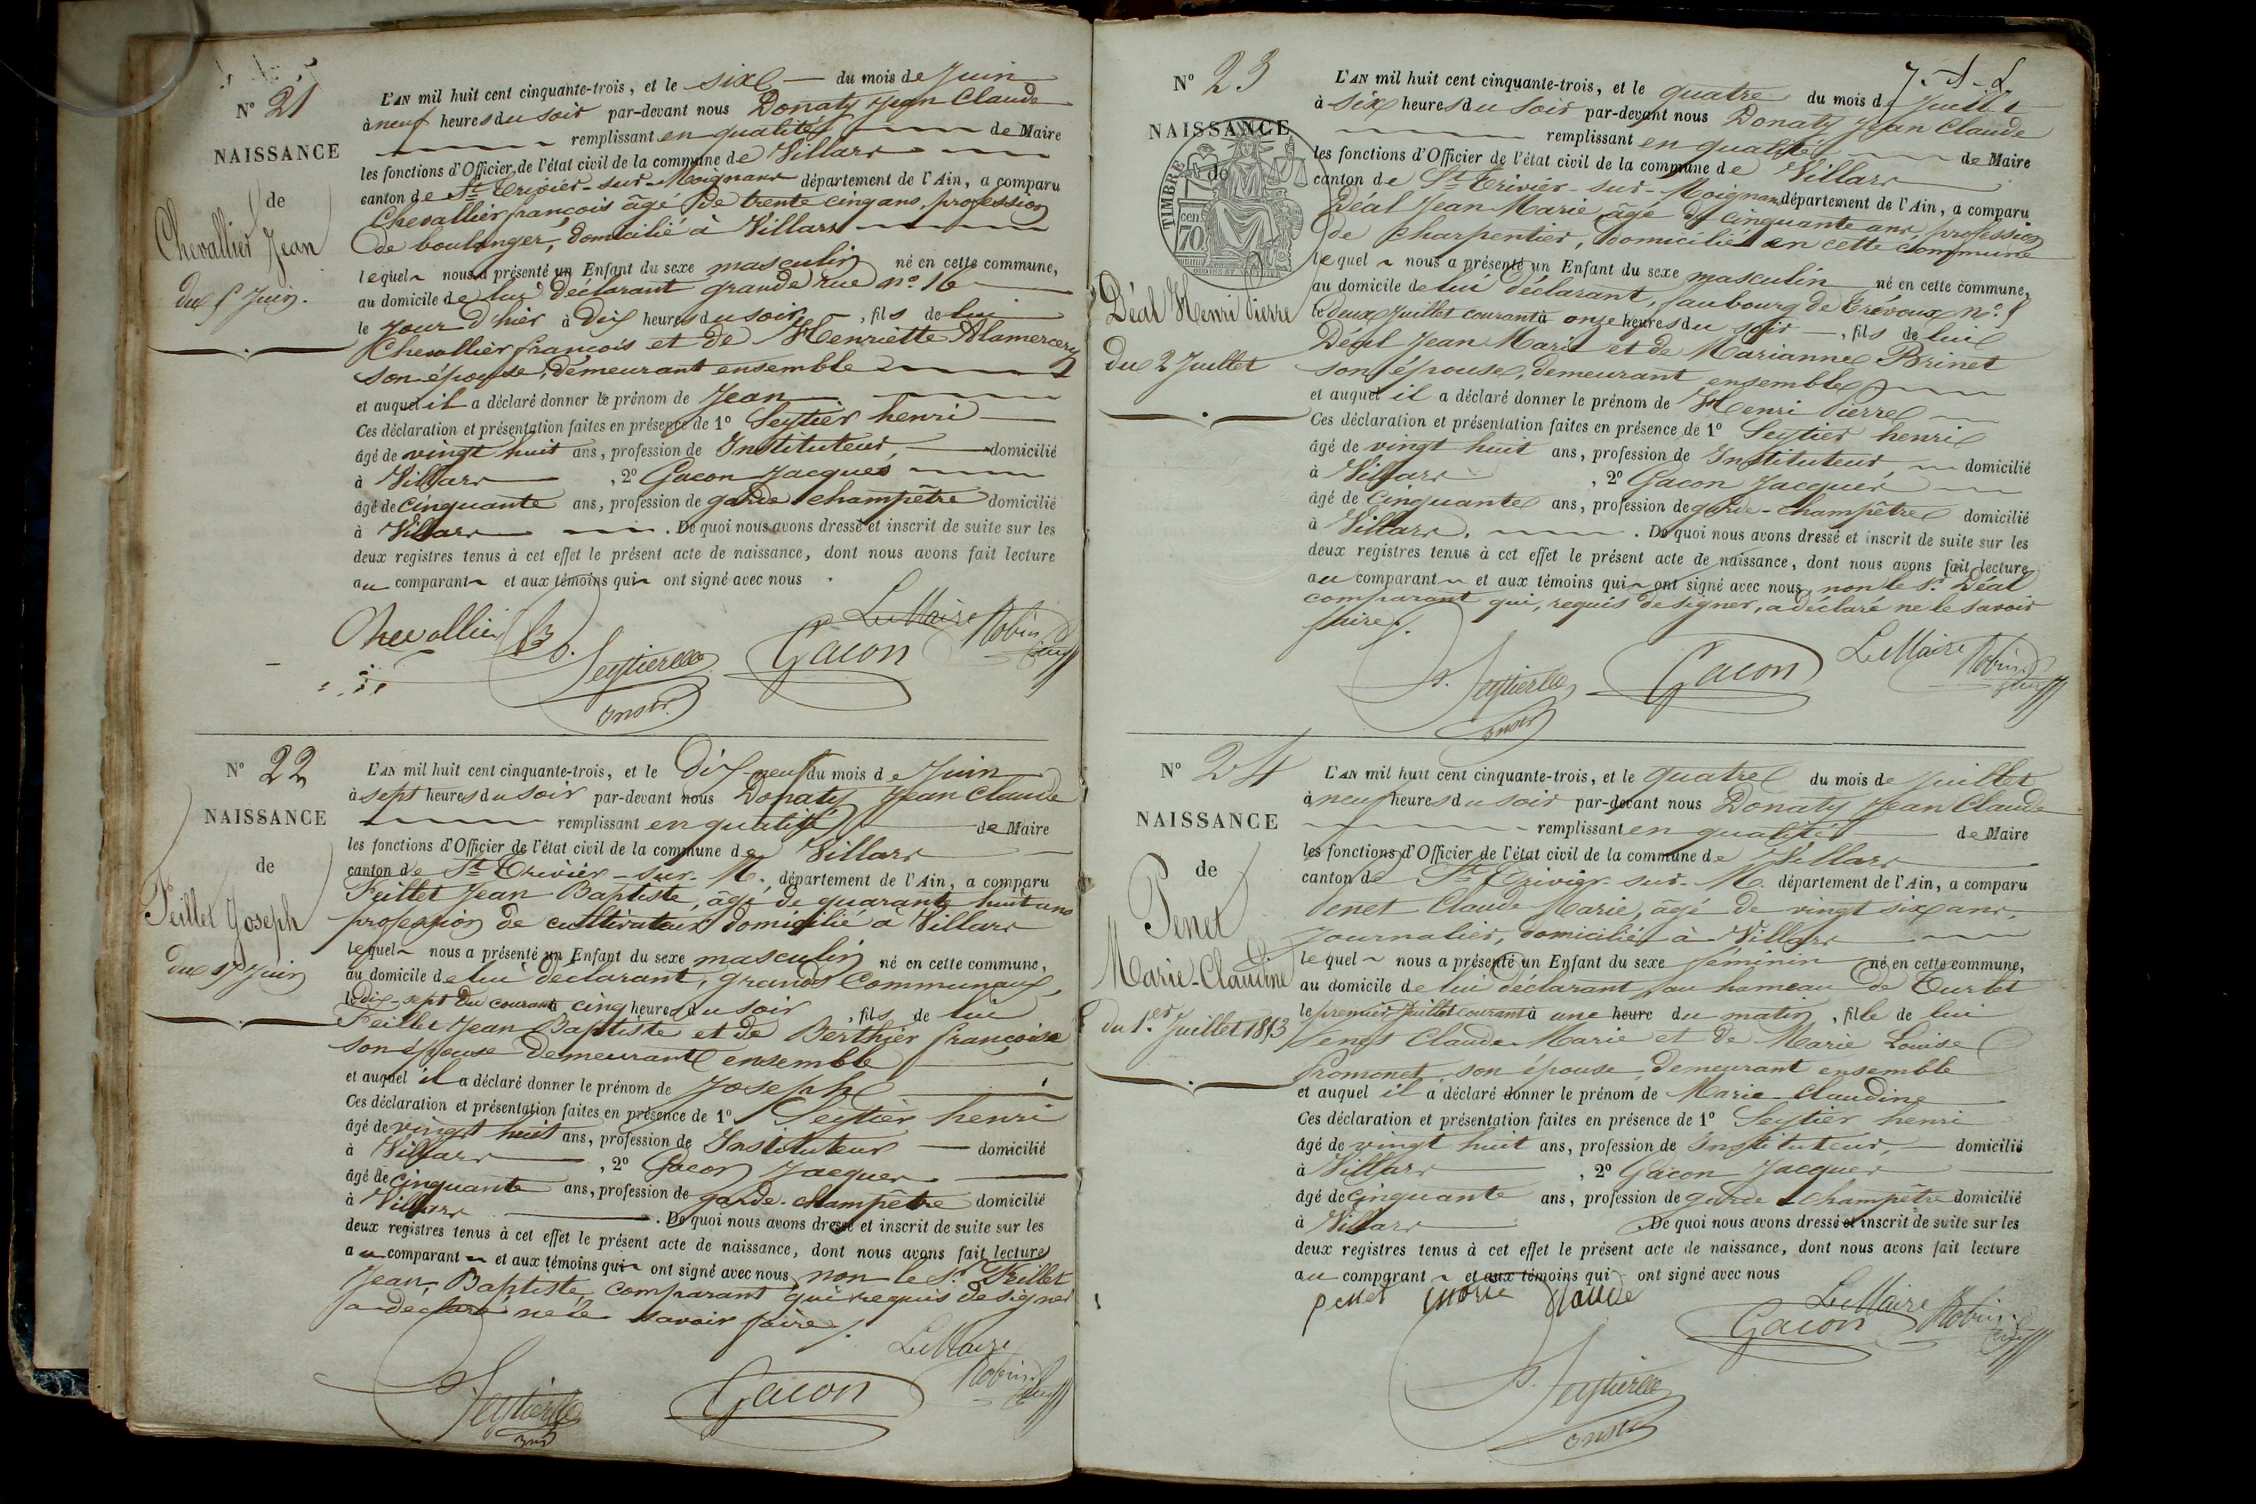 N° 21
NAISSANCE
de
Chevallier Jean
du 5 Juin.
L'AN mil huit cent cinquante-trois, et le six du mois de Juin
à neuf heures du soir par-devant nous Donaty Jean Claude
remplissant en qualité de Maire
les fonctions d'Officier de l'état civil de la commune de Villars
canton de St Trivier-sur-Moignans département de l'Ain, a comparu
Chevallier françois âgé de trente cinq ans, profession
de boulanger, domicilié à Villars
lequel nous a présenté un Enfant du sexe masculin né en cette commune,
au domicile de lui déclarant grande rue n° 16
le jour d'hier à Dix heures du soir, fils de lui
Chevallier françois et de Henriette Alamercery
son épouse, demeurant ensemble
et auquel il a déclaré donner le prénom de Jean
Ces déclaration et présentation faites en présence de 1° Seytier henri
âgé de vingt huit ans, profession de Instituteur, domicilié
à Villars, 2° Gacon Jacques
âgé de cinquante ans, profession de garde champêtre domicilié
à Villars. De quoi nous avons dressé et inscrit de suite sur les
deux registres tenus à cet effet le présent acte de naissance, dont nous avons fait lecture
au comparant et aux témoins qui ont signé avec nous.
Chevallier
Le Maire
Gacon
N° 22
NAISSANCE
de
Feillet Joseph
du 17 Juin
L'AN mil huit cent cinquante-trois, et le Dix-neuf du mois de Juin
à sept heures du soir par-devant nous Donaty Jean Claude
remplissant en qualité de Maire
les fonctions d'Officier de l'état civil de la commune de Villars
canton de St Trivier-sur-M. département de l'Ain, a comparu
Feillet Jean Baptiste, âgé de quarante huit ans
profession de cultivateur domicilié à Villars
lequel nous a présenté un Enfant du sexe masculin né en cette commune,
au domicile de lui déclarant, grands Communaux,
le dix-sept du courant à cinq heures du soir, fils de lui
Feillet Jean Baptiste et de Berthier françoise
son épouse demeurant ensemble
et auquel il a déclaré donner le prénom de Joseph
Ces déclaration et présentation faites en présence de 1° Seytier henri
âgé de vingt huit ans, profession de Instituteur domicilié
à Villars, 2° Gacon Jacques
âgé de cinquante ans, profession de garde-champêtre domicilié
à Villars. De quoi nous avons dressé et inscrit de suite sur les
deux registres tenus à cet effet le présent acte de naissance, dont nous avons fait lecture
au comparant et aux témoins qui ont signé avec nous, non le Sr. Feillet
Jean, Baptiste, comparant qui requis de signer
a déclaré ne le savoir faire.
Le Maire
Gacon
N° 23
NAISSANCE
de
TIMBRE
70 cen
Déal Henri Pierre
du 2 Juillet
L'AN mil huit cent cinquante-trois, et le quatre du mois de Juillet
à six heures du soir par-devant nous Donaty Jean Claude
remplissant en qualité de Maire
les fonctions d'Officier de l'état civil de la commune de Villars
canton de St Trivier-sur-Moignans département de l'Ain, a comparu
Déal Jean Marie âgé de cinquante ans, profession
de charpentier, domicilié en cette commune
lequel nous a présenté un Enfant du sexe masculin né en cette commune,
au domicile de lui déclarant, faubourg de Trévoux, n° 5
le deux Juillet courant à onze heures du soir, fils de lui
Déal Jean Marie et de Marianne Brinet
son épouse, demeurant ensemble
et auquel il a déclaré donner le prénom de Henri Pierre
Ces déclaration et présentation faites en présence de 1° Seytier henri
âgé de vingt huit ans, profession de Instituteur, domicilié
à Villars, 2° Gacon Jacques
âgé de cinquante ans, profession de garde-champêtre domicilié
à Villars. De quoi nous avons dressé et inscrit de suite sur les
deux registres tenus à cet effet le présent acte de naissance, dont nous avons fait lecture
au comparant et aux témoins qui ont signé avec nous, non le Sr. Déal
comparant qui, requis de signer, a déclaré ne le savoir
faire.
Le Maire
Gacon
N° 24
NAISSANCE
de
Penet
Marie-Claudine
du 1.er Juillet 1853
L'AN mil huit cent cinquante-trois, et le quatre du mois de Juillet
à neuf heures du soir par-devant nous Donaty Jean Claude
remplissant en qualité de Maire
les fonctions d'Officier de l'état civil de la commune de Villars
canton de St Trivier-sur-M. département de l'Ain, a comparu
Penet Claude Marie, âgé de vingt six ans,
journalier, domicilié à Villars
lequel nous a présenté un Enfant du sexe féminin né en cette commune,
au domicile de lui déclarant, au hameau de Turlet
le premier Juillet courant à une heure du matin, fille de lui
Penet Claude Marie et de Marie Louise
Promonet son épouse, demeurant ensemble
et auquel il a déclaré donner le prénom de Marie-Claudine
Ces déclaration et présentation faites en présence de 1° Seytier henri
âgé de vingt huit ans, profession de Instituteur, domicilié
à Villars, 2° Gacon Jacques
âgé de cinquante ans, profession de garde-champêtre domicilié
à Villars. De quoi nous avons dressé et inscrit de suite sur les
deux registres tenus à cet effet le présent acte de naissance, dont nous avons fait lecture
au comparant et aux témoins qui ont signé avec nous
penet marie Claude
Le Maire
Gacon